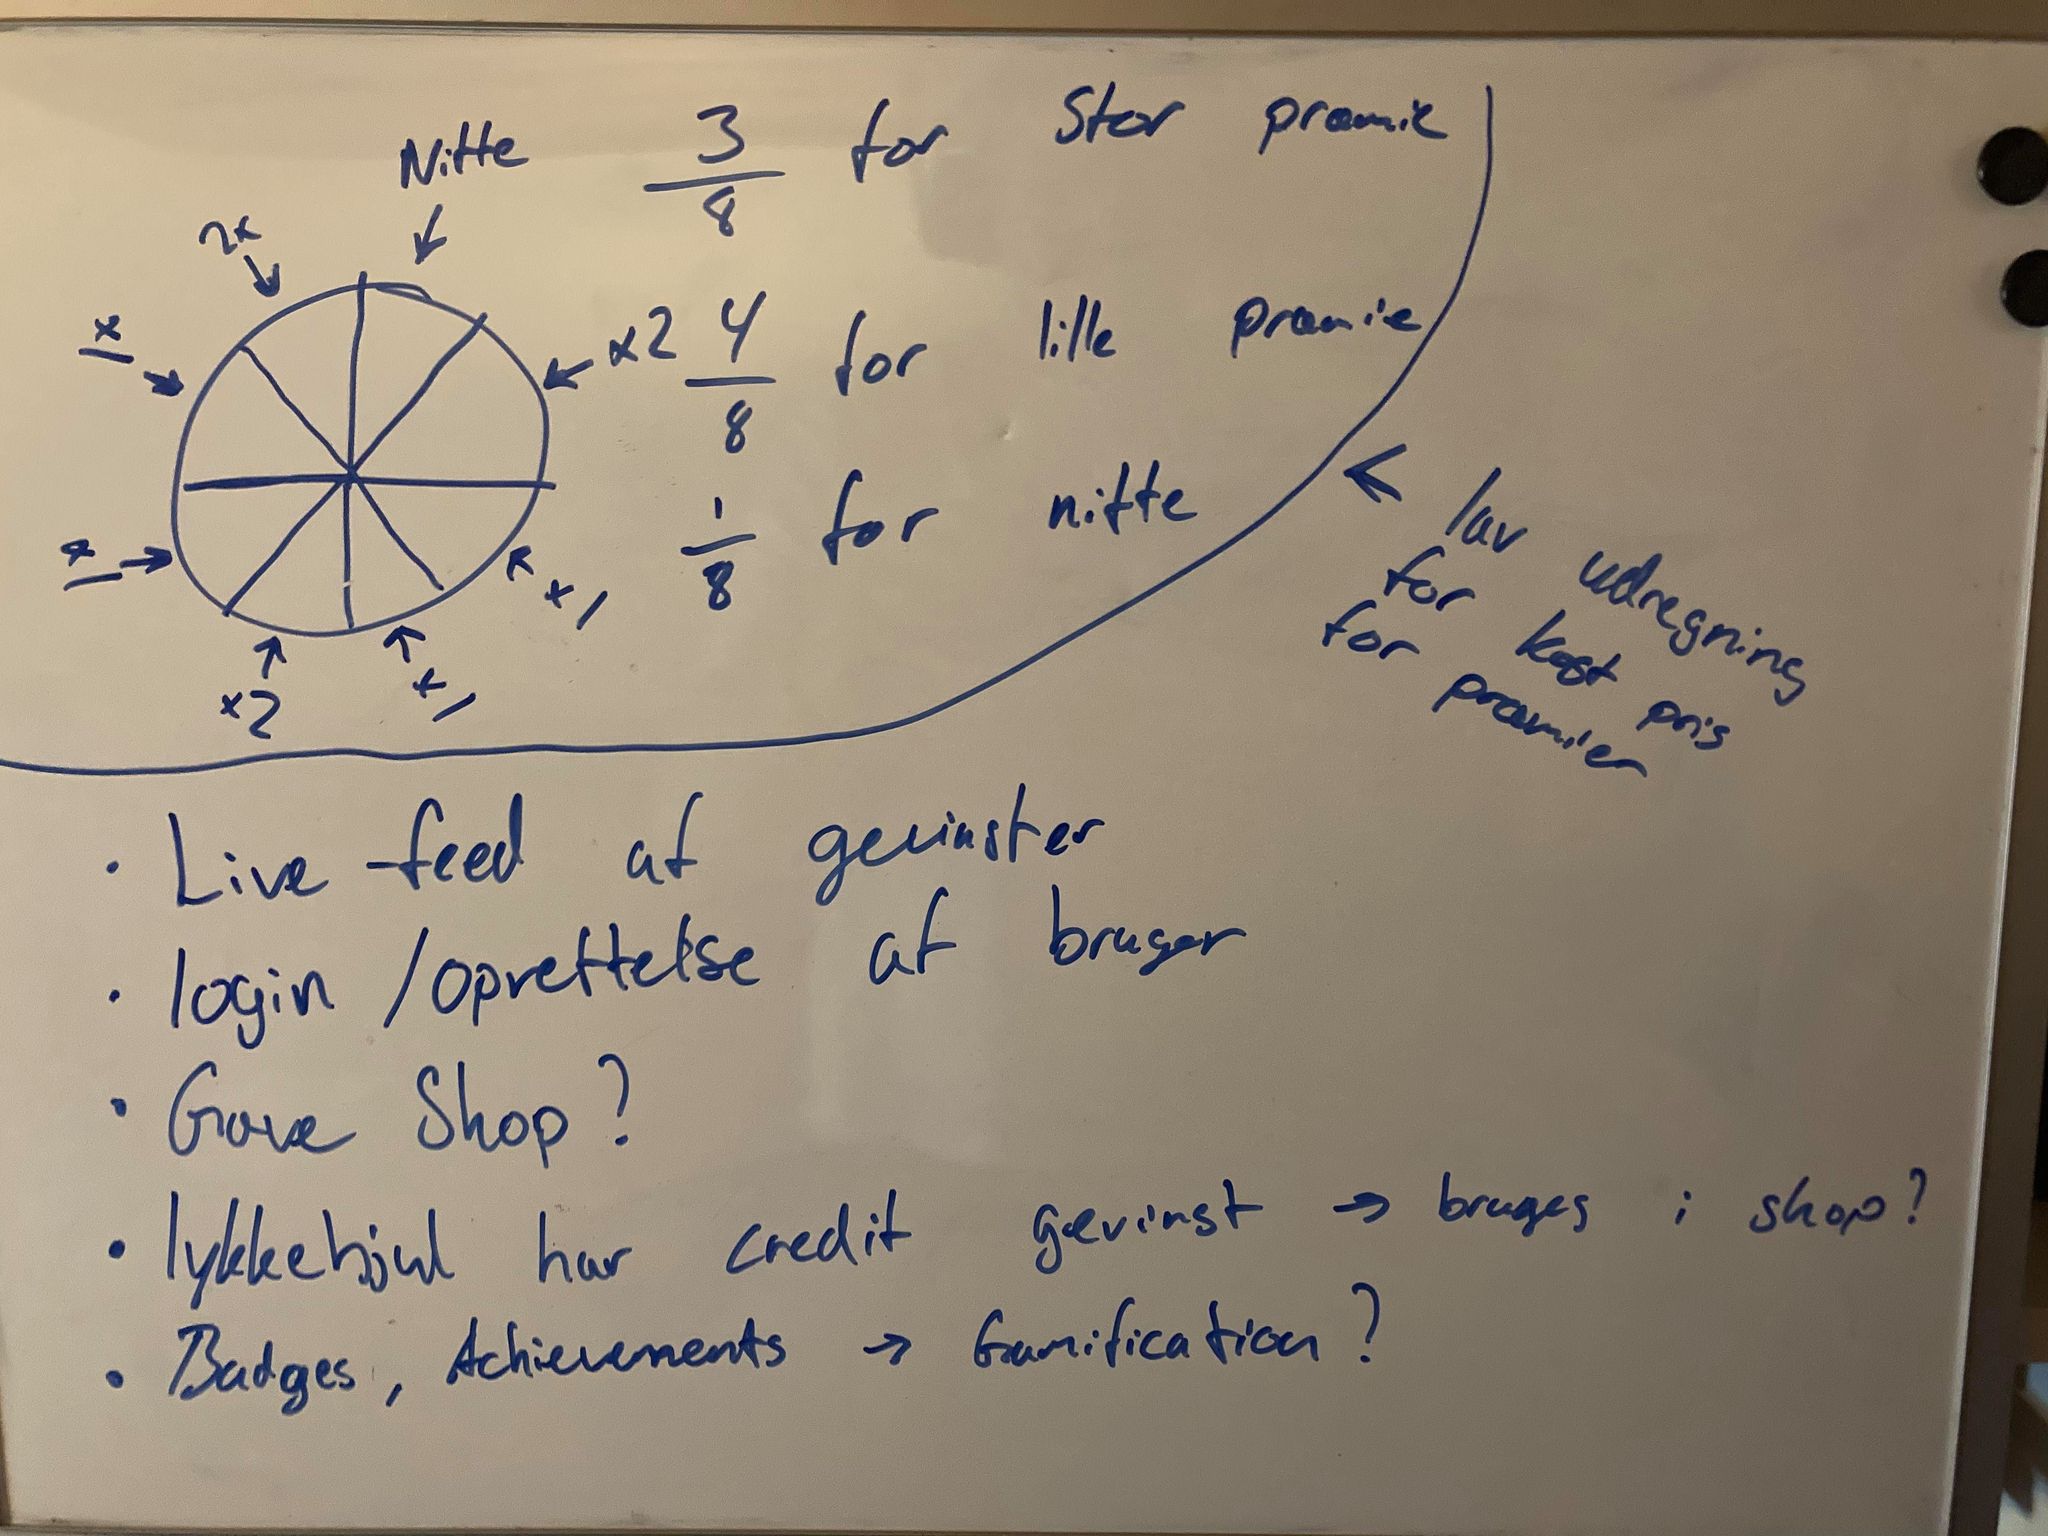 Nitte
3/8 for Stor præmie
2x
x
x2
4/8 for lille præmie
1/8 for nitte
x
x1
x2
x1
lav udregning
for kost pris
for præmier
• Live feed af gevinster
• login /oprettelse af bruger
• Gave Shop?
• lykkehjul har credit gevinst → bruges i shop?
• Badges, Achievements → Gamification?